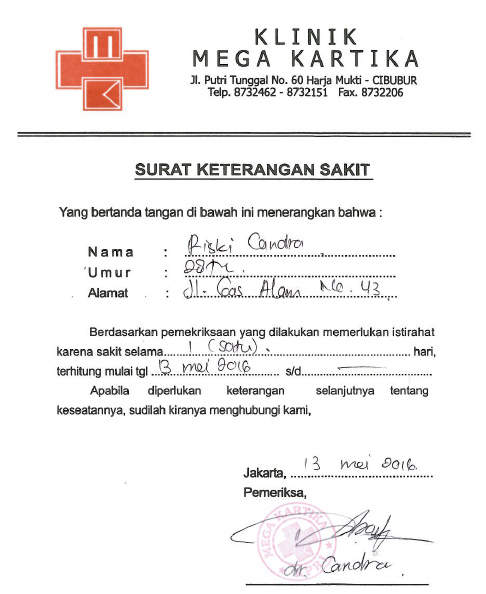 KLINIK
MEGA KARTIKA
Jl. Putri Tunggal No. 60 Harja Mukti - CIBUBUR
Telp. 8732462 - 8732151 Fax. 8732206
SURAT KETERANGAN SAKIT
Yang bertanda tangan di bawah ini menerangkan bahwa :
Nama : Riski Candra
Umur : 28th.
Alamat : Jl. Gas Alam No. 43
Berdasarkan pemekriksaan yang dilakukan memerlukan istirahat
karena sakit selama 1 (satu) hari,
terhitung mulai tgl 13 mei 2016 s/d —
Apabila diperlukan keterangan selanjutnya tentang
keseatannya, sudilah kiranya menghubungi kami,
Jakarta, 13 mei 2016
Pemeriksa,
MEGA KARTIKA
dr. Candra